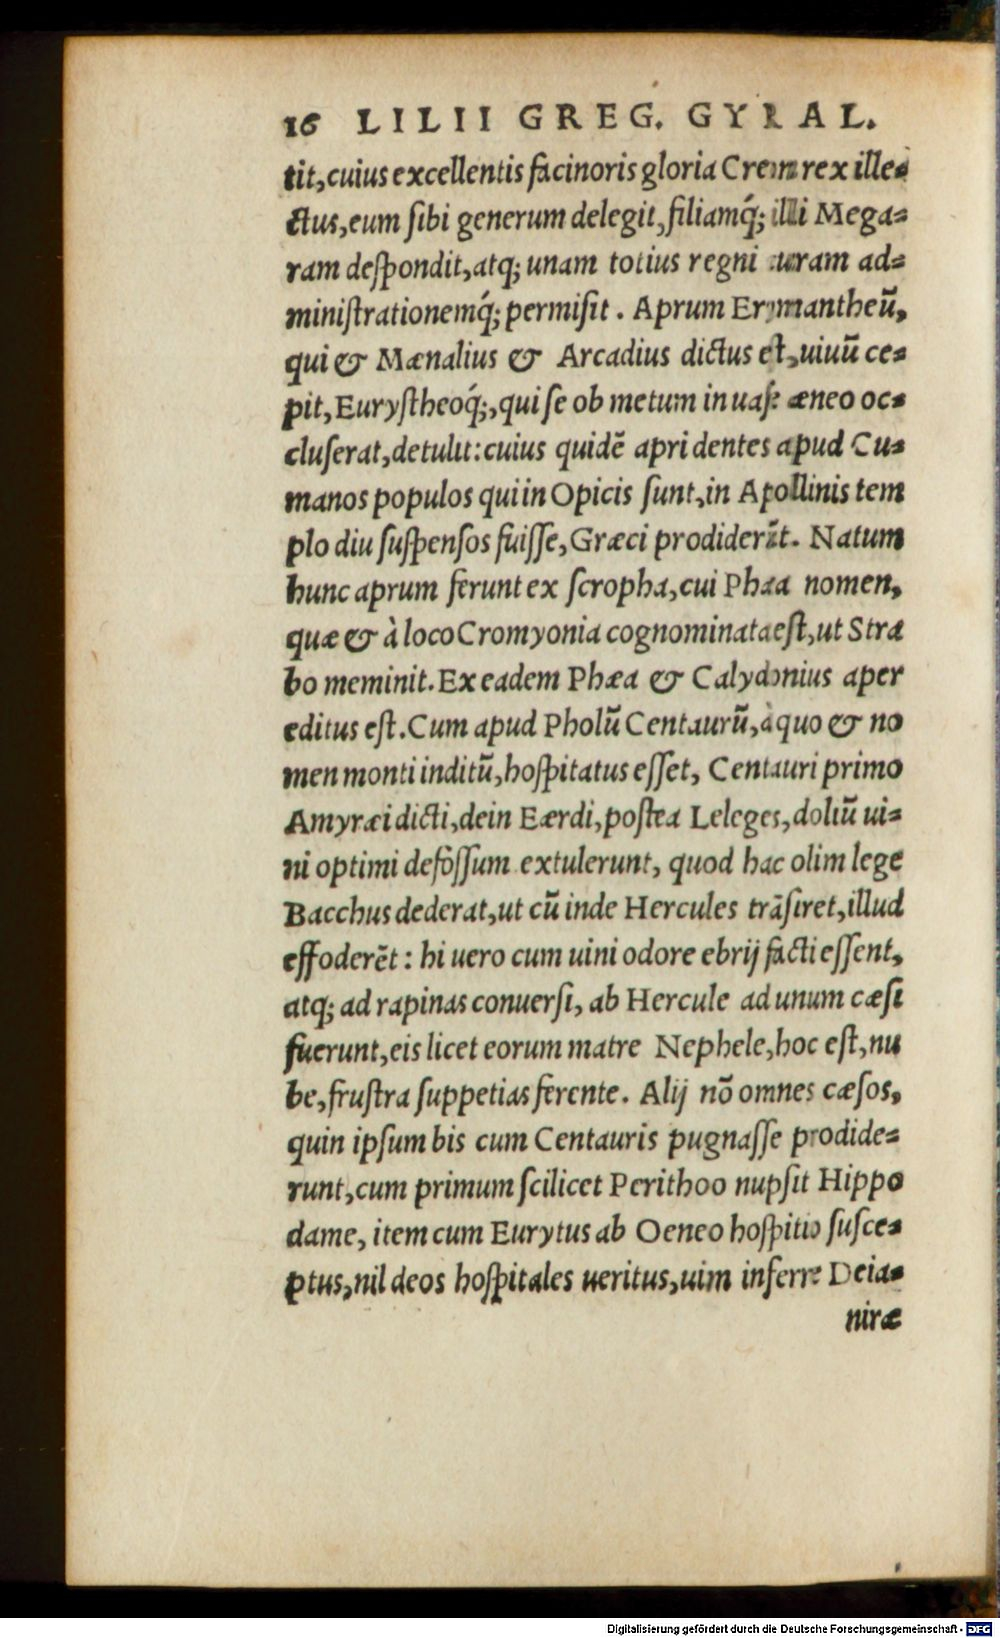 16 LILII GREG. GYRAL.
tit, cuius excellentis facinoris gloria Creon rex ille=
ctus, eum sibi generum delegit, filiamq́; illi Mega=
ram despondit, atq; unam totius regni curam ad=
ministrationemq́; permisit. Aprum Erymantheũ,
qui & Mænalius & Arcadius dictus est, uiuũ ce=
pit, Eurystheoq́;, qui se ob metum in uase æneo oc=
cluserat, detulit: cuius quidẽ apri dentes apud Cu=
manos populos qui in Opicis sunt, in Apollinis tem
plo diu suspensos fuisse, Græci prodiderũt. Natum
hunc aprum ferunt ex scropha, cui Phæa nomen,
quæ & à loco Cromyonia cognominata est, ut Stra
bo meminit. Ex eadem Phæa & Calydonius aper
editus est. Cum apud Pholũ Centaurũ, à quo & no
men monti inditũ, hospitatus esset, Centauri primo
Amyræi dicti, dein Eærdi, postea Leleges, doliũ ui=
ni optimi defossum extulerunt, quod hac olim lege
Bacchus dederat, ut cũ inde Hercules trãsiret, illud
effoderẽt: hi uero cum uini odore ebrij facti essent,
atq; ad rapinas conuersi, ab Hercule ad unum cæsi
fuerunt, eis licet eorum matre Nephele, hoc est, nu
be, frustra suppetias ferente. Alij nõ omnes cæsos,
quin ipsum bis cum Centauris pugnasse prodide=
runt, cum primum scilicet Perithoo nupsit Hippo
dame, item cum Eurytus ab Oeneo hospitio susce=
ptus, nil deos hospitales ueritus, uim inferre Deia=
niræ
Digitalisierung gefördert durch die Deutsche Forschungsgemeinschaft - DFG